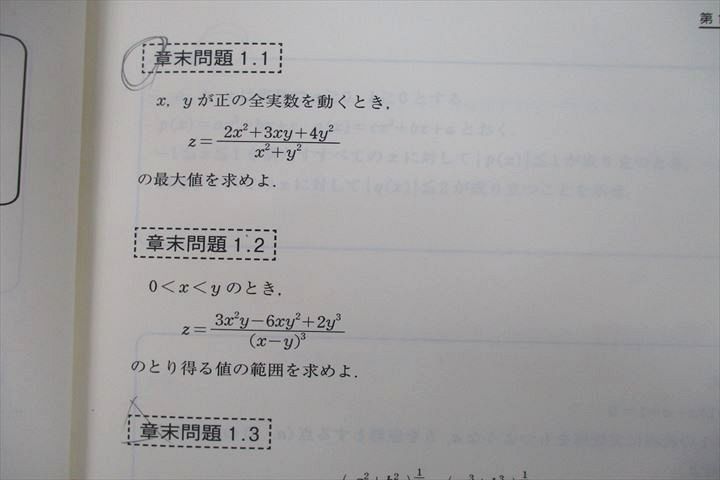 第
章末問題 1.1
x, y が正の全実数を動くとき,
z = \frac{2x^2+3xy+4y^2}{x^2+y^2}
の最大値を求めよ.
章末問題 1.2
0<x<y のとき,
z = \frac{3x^2y-6xy^2+2y^3}{(x-y)^3}
のとり得る値の範囲を求めよ.
章末問題 1.3